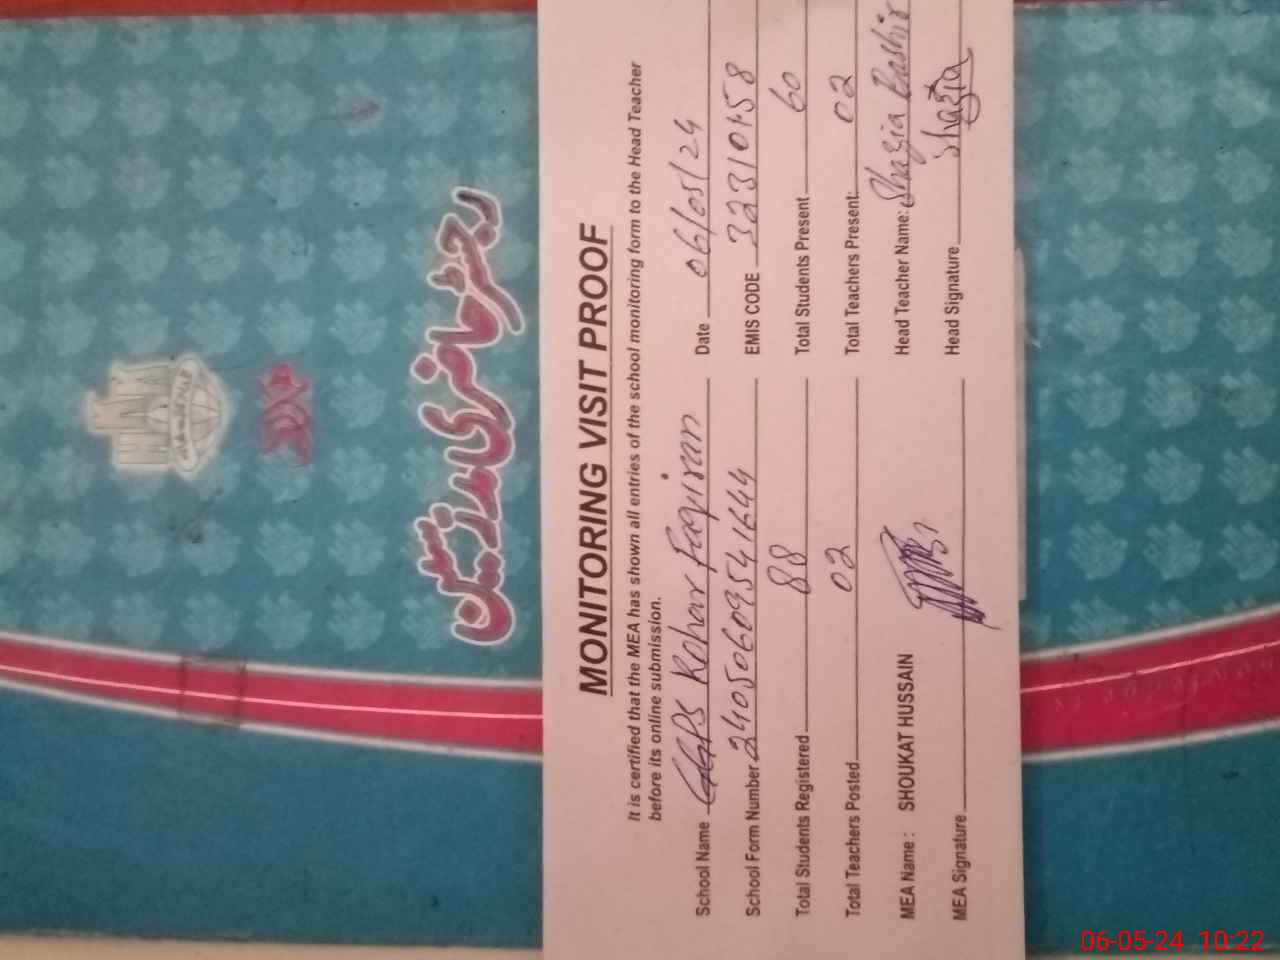 MONITORING VISIT PROOF
It is certified that the MEA has shown all entries of the school monitoring form to the Head Teacher
before its online submission.
School Name GGPS Kohar Faqiran Date 06/05/24
School Form Number 24050609541644 EMIS CODE 32310158
Total Students Registered 88 Total Students Present 60
Total Teachers Posted 02 Total Teachers Present: 02
MEA Name : SHOUKAT HUSSAIN Head Teacher Name: Shazia Bashir
MEA Signature Head Signature Shazia
رجسٹر حاضری مدرسین
06-05-24 10:22